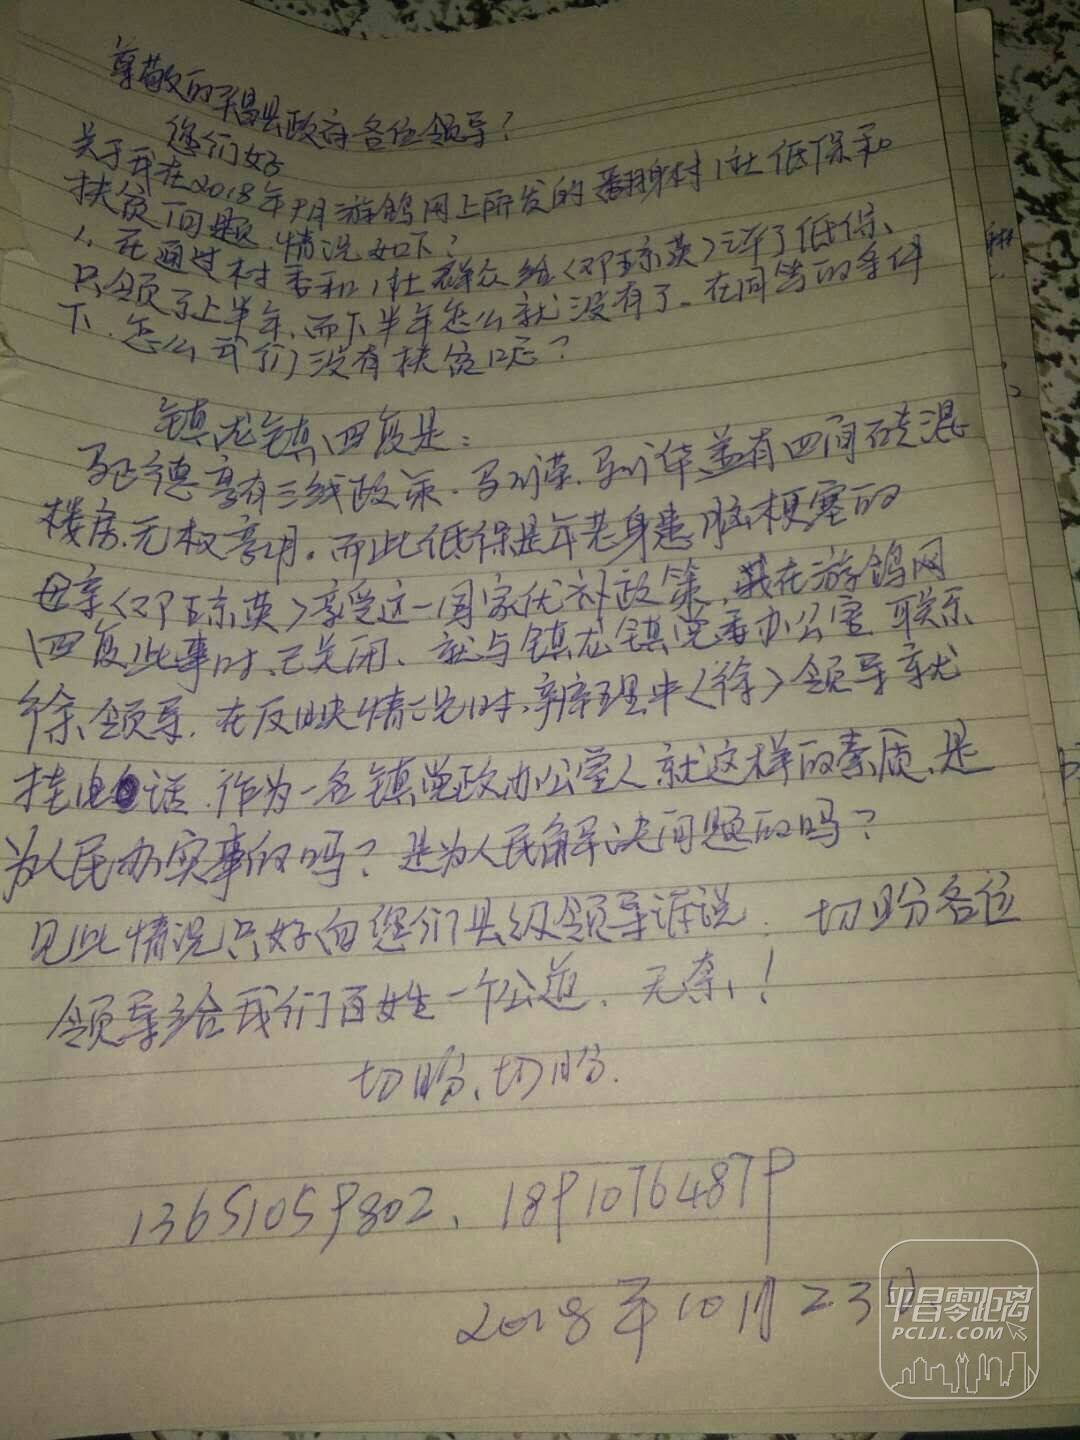 尊敬的平昌县政府各位领导:
您们好
关于我在2018年9月游鸽网上所发的翻身村1社低保和
扶贫问题,情况如下:
1、在通过村委和1社群众给(邓玉京英)评了低保、
只领了上半年,而下半年怎么就没有了。在同等的条件
下、怎么我们没有扶贫呢?
镇龙镇回复是:
马正德享有三线政策.马川荣.马川华盖有四间砖混
楼房.无权享用。而此低保是年老身患脑梗塞的
母亲(邓玉京英)享受这一国家优补政策,我在游鸽网
回复此事时、已关闭、就与镇龙镇党委办公室联系
徐领导.在反映情况时,辛辛理中(徐)领导就
挂电话.作为一名镇党政办公室人就这样的素质、是
为人民办实事的吗?是为人民解决问题的吗?
见此情况只好向您们县级领导诉说.切盼各位
领导给我们百姓一个公道、无奈!
切盼、切盼.
13651059802、18910764879
2018年10月23日
平昌零距离
PCLJL.COM